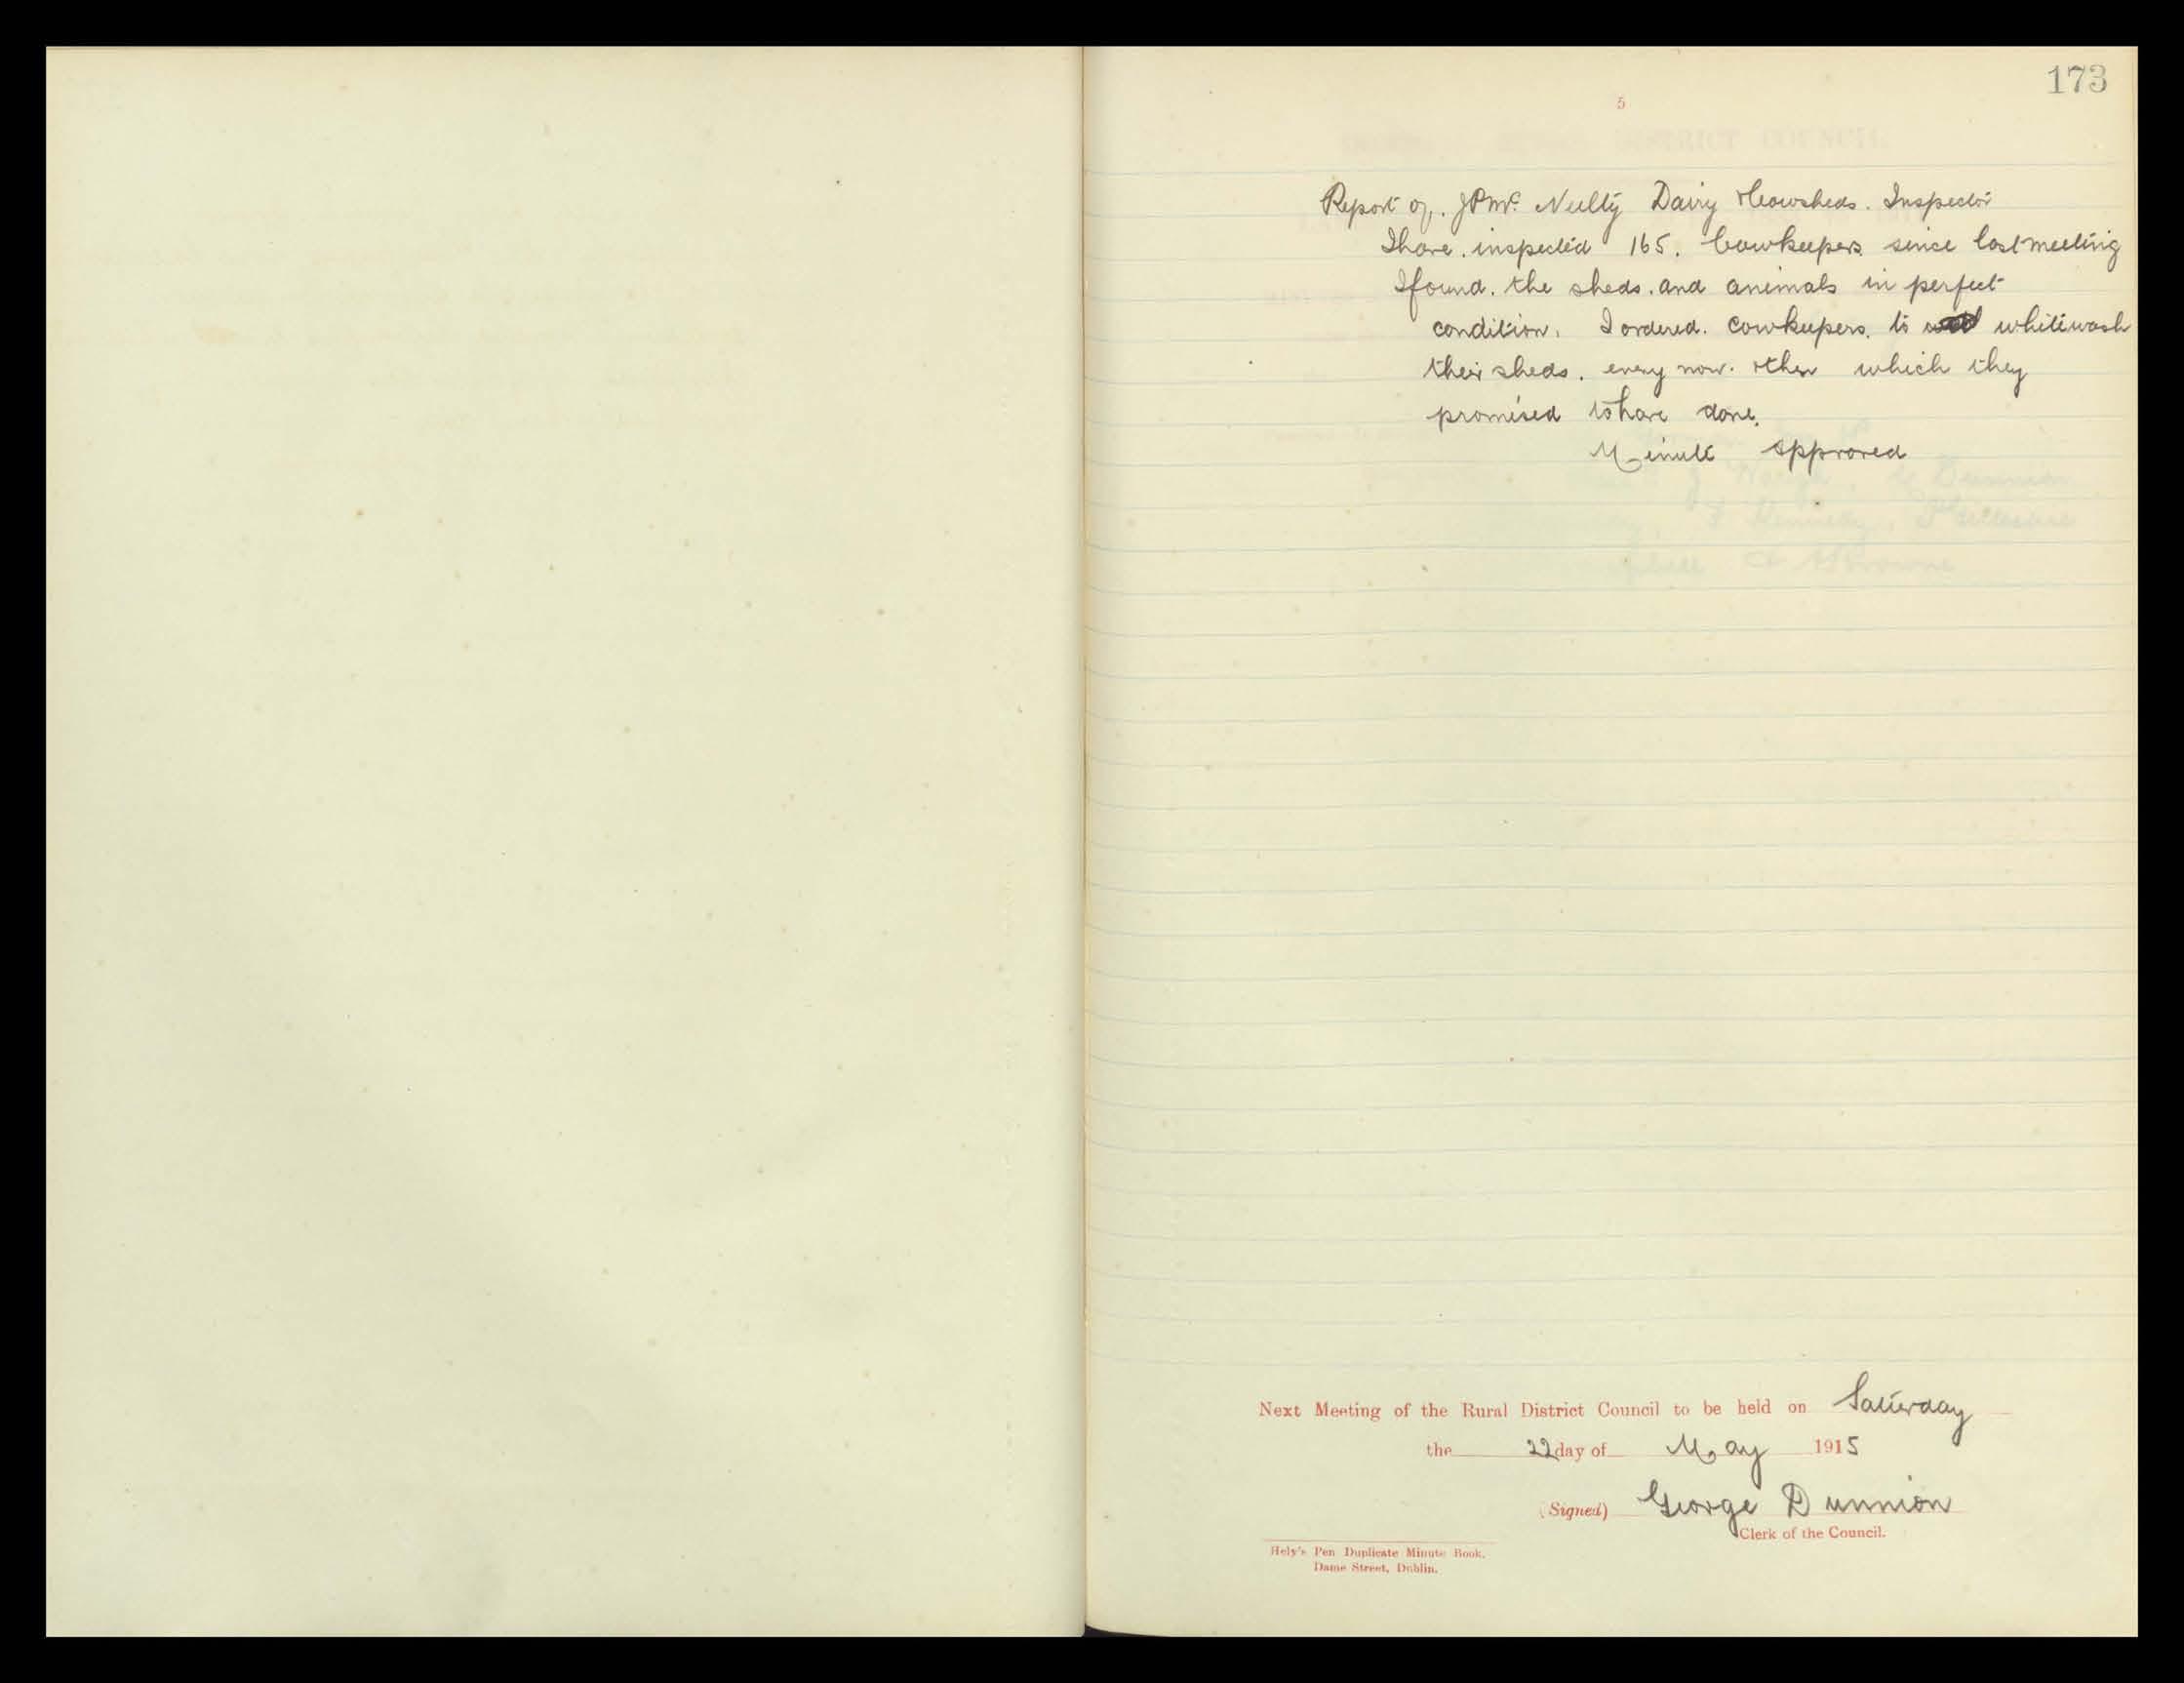 173
5
Report of. J P Mc Nulty Dairy & Cowsheds. Inspector
I have. inspected 165. Cowkeepers since last meeting
I found. the sheds. and animals in perfect
condition. I ordered. cowkeepers. to whitewash
their sheds. every now. & then which they
promised to have done.
Minute approved
Next Meeting of the Rural District Council to be held on Saturday
the 22 day of May 1915
(Signed) George Dunnion
Clerk of the Council.
Hely's Pen Duplicate Minute Book.
Dame Street, Dublin.